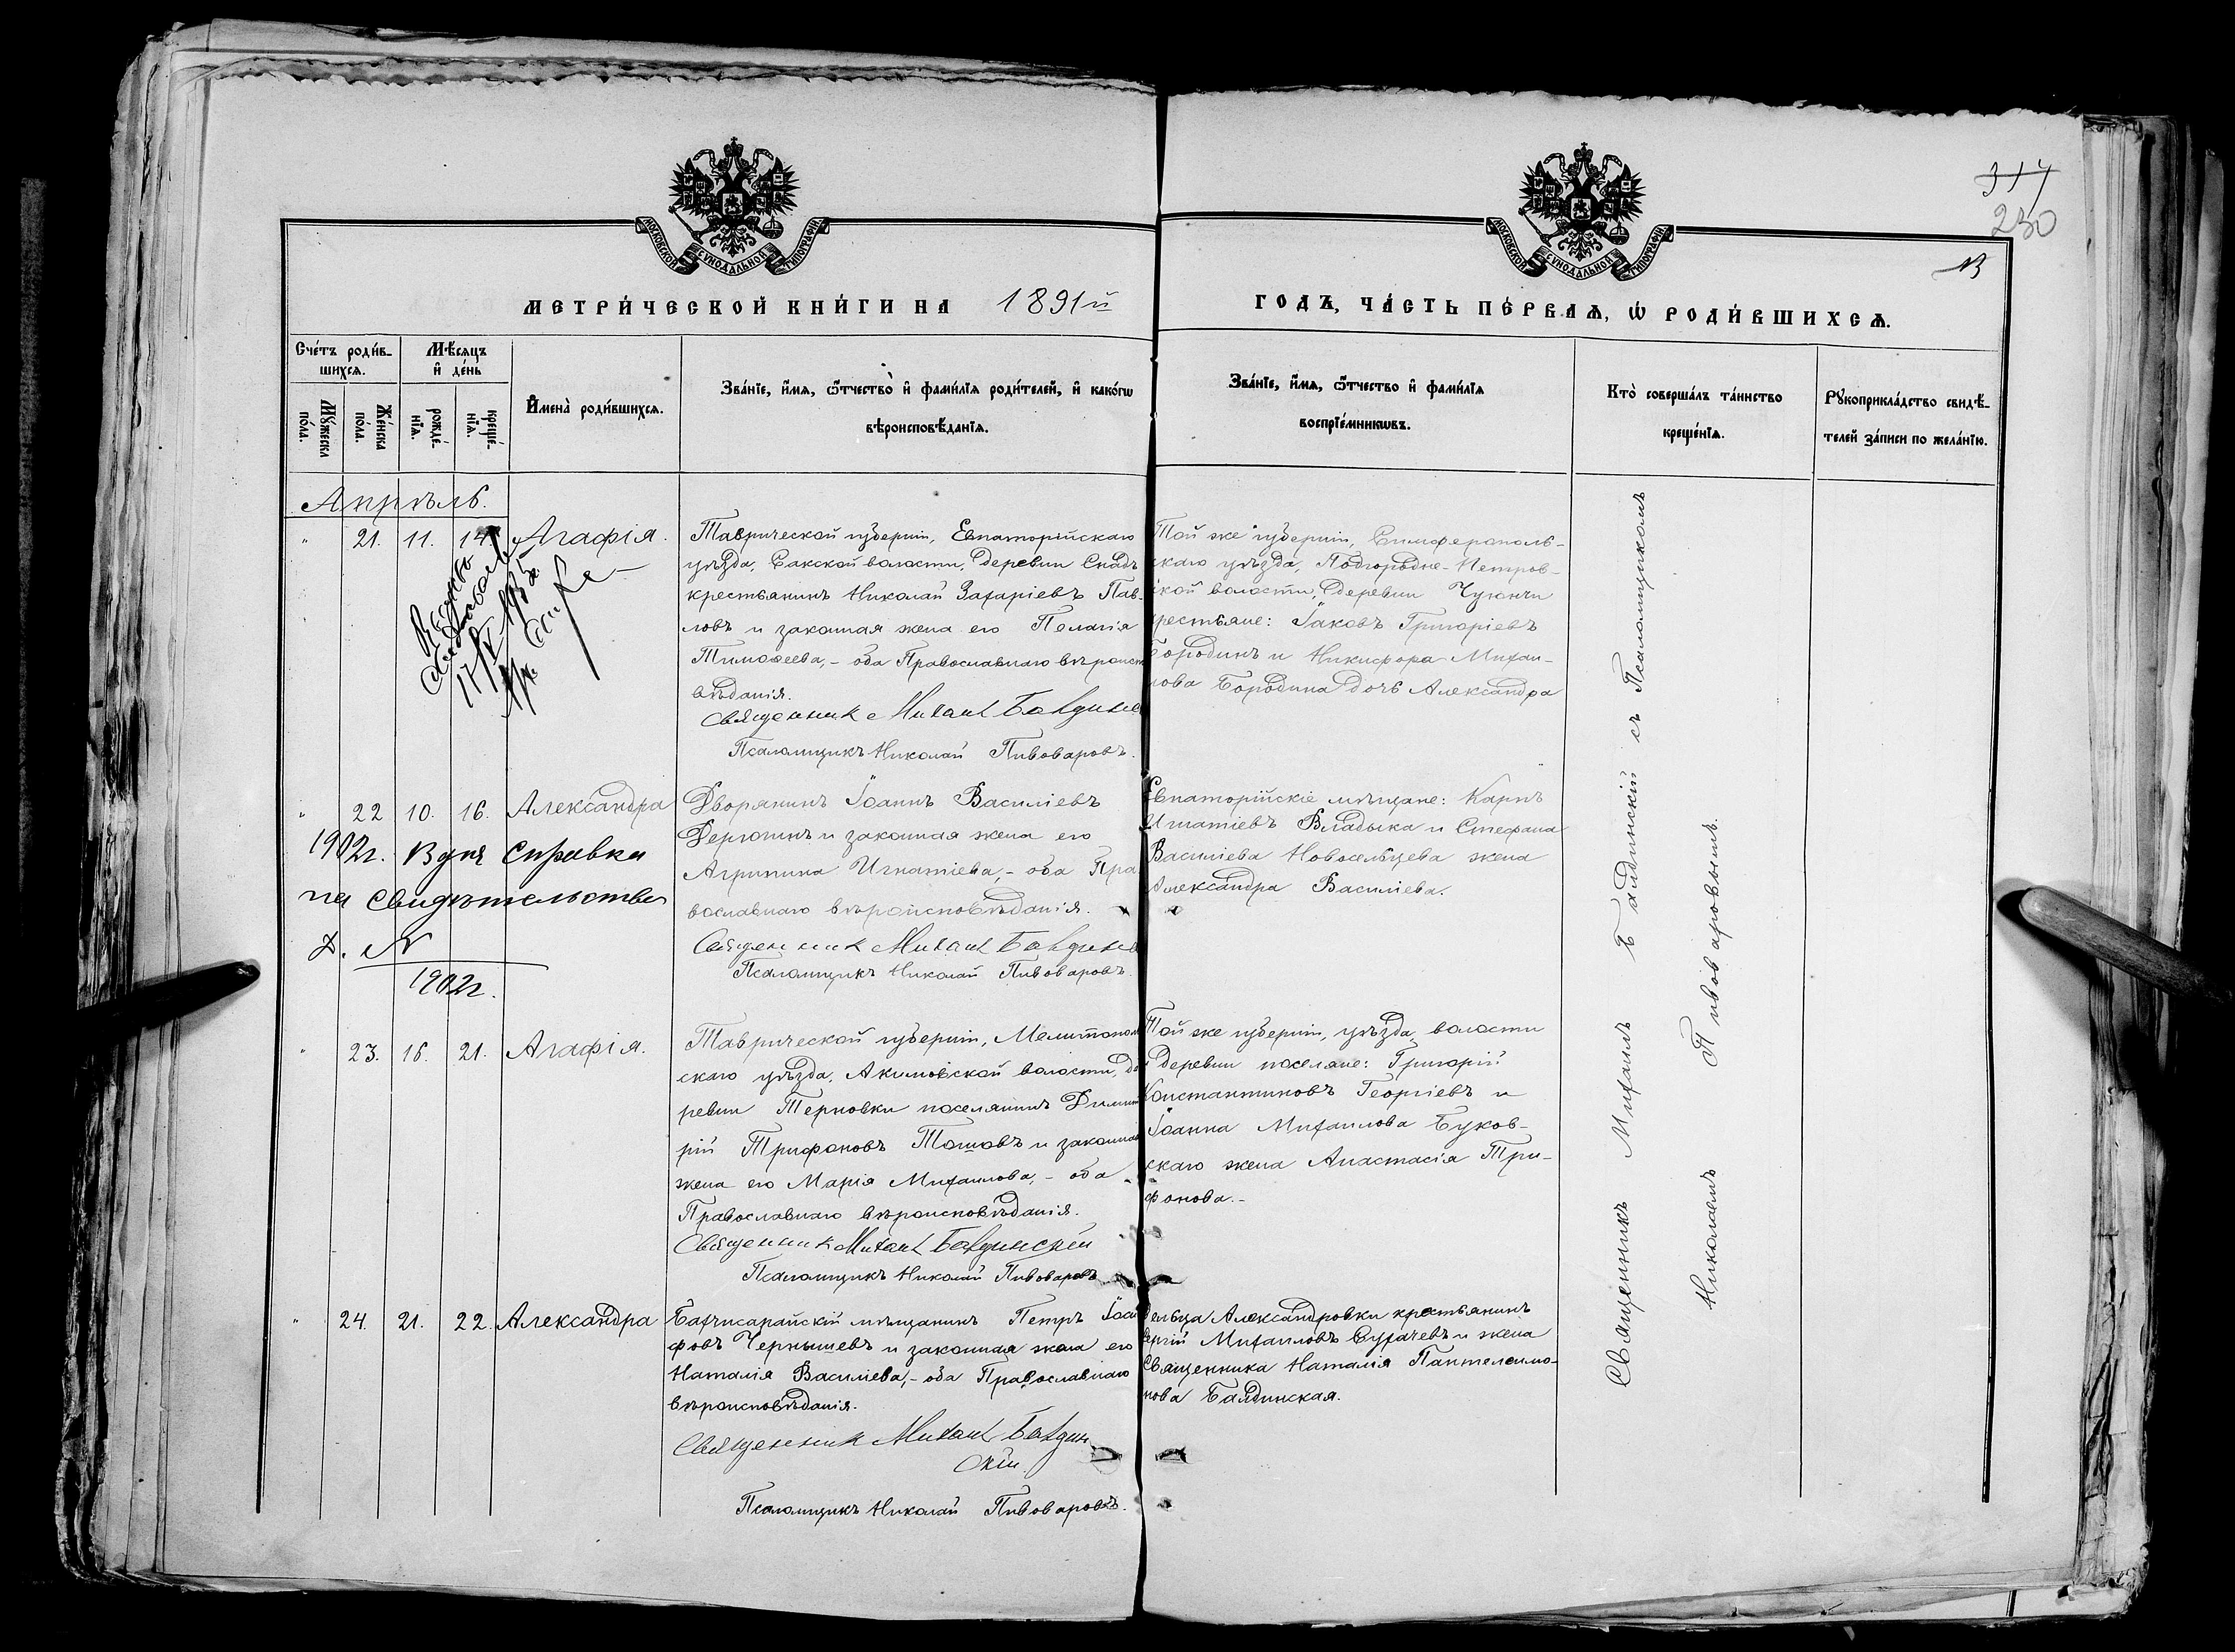 317
230
13
МОСКОВСКОЙ СѴНОДАЛЬНОЙ ТИПОГРАФІИ
МОСКОВСКОЙ СѴНОДАЛЬНОЙ ТИПОГРАФІИ
МЕТРИ́ЧЕСКОЙ КНИ́ГИ НА 1891й
ГОДЪ, ЧА́СТЬ ПЕ́РВАѦ, Ѡ РОДИ́ВШИХСѦ.
Сче́тъ роди́в-
шихсѧ.
Мꙋжеска
по́ла.
Же́нска
по́ла.
Мѣ́сѧцъ
и҆ де́нь
рожде́-
нїѧ.
креще́-
нїѧ.
И҆мена̀ роди́вшихсѧ.
Зва́нїе, и҆́мѧ, ѻ҆́тчество и҆ фами́лїѧ роди́телей, и҆ како́гѡ
вѣроисповѣ́данїѧ.
Зва́нїе, и҆́мѧ, ѻ҆́тчество и҆ фами́лїѧ
воспрїе́мникѡвъ.
Кто̀ соверша́лъ та́инство
креще́нїѧ.
Рꙋкоприкла́дство свидѣ́-
телей за́писи по жела́нїю.
Апрѣль.
" 21. 11. 14. Агафія.
Таврической губерніи, Евпаторійскаго
уѣзда, Сакской волости, деревни Скадъ
крестьянинъ Николай Захаріевъ Пав-
ловъ и законная жена его Пелагія
Тимоѳеева,- оба Православнаго вѣроиспо
вѣданія.
Священникъ Михаилъ Баѵдинск
Псаломщикъ Николай Пивоваровъ.
Той же губерніи, Симферополь-
скаго уѣзда, Подгородне-Петров-
ской волости, деревни Чуюнчи
крестьяне: Іаковъ Григоріевъ
Бородинъ и Никифора Михаи-
лова Бородина дочь Александра
" 22 10. 16. Александра
Дворянинъ Іоаннъ Василіевъ
Дерюгинъ и законная жена его
Агрипина Игнатіева,- оба Пра
вославнаго вѣроисповѣданія.
Священникъ Михаилъ
Псаломщикъ Николай Пивоваровъ.
Евпаторійскіе мѣщане: Карпъ
Игнатіевъ Владыка и Стефана
Василіева Новосельцева жена
Александра Василіева.
1902г. Выдана справка
на свидѣтельство
№
1902г.
" 23. 16. 21. Агафія.
Таврической губерніи, Мелитополь
скаго уѣзда, Акимовской волости, де
ревни Терновки поселянинъ Димит
рій Трифоновъ Тошовъ и законная
жена его Марія Михаилова,- оба
Православнаго вѣроисповѣданія.
Священникъ Михаилъ
Псаломщикъ Николай Пивоваровъ
Той же губерніи, уѣзда, волости
и деревни поселяне: Григорій
Константиновъ Георгіевъ и
Іоанна Михаилова Буков-
скаго жена Анастасія Три-
фонова.-
" 24. 21. 22. Александра
Бахчисарайскій мѣщанинъ Петръ Іоси
фовъ Чернышевъ и законная жена его
Наталія Василіева,- оба Православнаго
вѣроисповѣданія.
Священникъ Михаилъ
скій.
Псаломщикъ Николай Пивоваровъ.
сельца Александровки крестьянинъ
Сергій Михаиловъ Сухачевъ и жена
Священника Наталія Пантелеимо-
нова
Священникъ Михаилъ съ Псаломщикомъ
Николаемъ Пивоваровымъ.